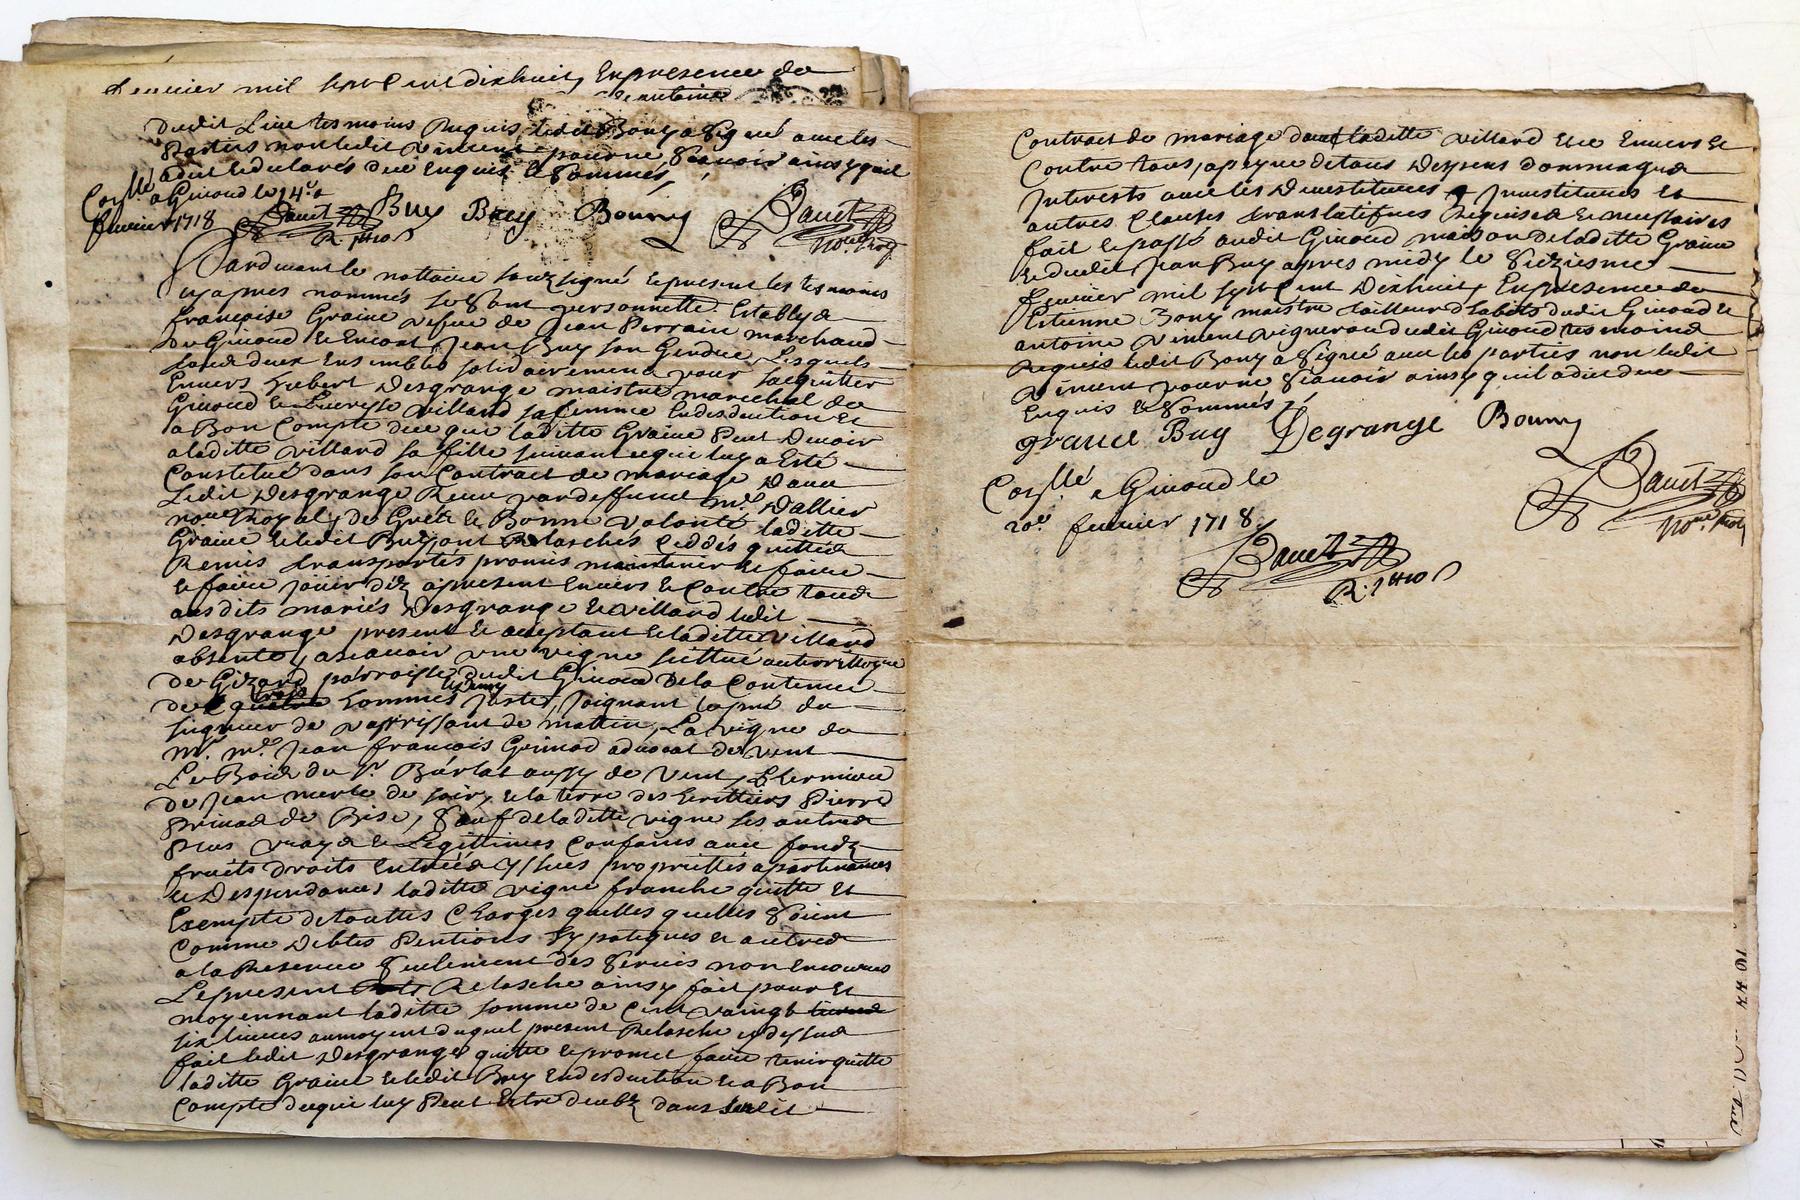 feurier mil sept cent dixhuit, En presence de
antoine
dudit Lieu tesmoins Requis ledit Bouy a signé auec les
Parties non ledit Vincent pour ne sçauoir ainsy quil
a dit et declaré de ce Enquis et sommés,
Con^llé a Giuord le 14^e
feurier 1718 Dauet Buy Buy Bouuy Dauet
R. no^re Roy
Pardeuant le nottaire souz signé et present les tesmoins
cy apres nommés se sont personnellem. Establys
françoise Graine vefue de Jean Perrain marchand
du Giuord et Encor Jean Buy son Gendre Lesquels
tous deux Ensembles solidairement pour sacquitter
Enuers hubert Desgrange maistre marechal de
Giuord et Lucresse Villard sa femme En desduction et
a Bon Compte de ce que laditte Graine Peut Deuoir
a laditte Villard sa fille suiuant ce que luy a Esté
Constitué dans son Contract de mariage Dauec
Ledit Desgrange Receu par deffunct m^e Dallier
no^re Royal, de Gré et de Bonne Volonté laditte
Graine et ledit Buy ont Relaschés Ceddés quittés
Remis transportés promis maintenir et faire
et faire jouir dez apresent Enuers et Contre tous
aus dits mariés Desgrange et Villard ledit
Desgrange present et acceptant et laditte Villard
absente, a scauoir vne vigne scittué au territtoyre
de Gizard parroisse dudit Giuord De la Contenue
de quatre hommes Joster, Joignant le pré du
seigneur de vassissant de mattin, La vigne de
M^r m^e Jean francois Grimod aduocat de vent
Le Bois du s^r Barlat aussy de Vent, L hermiere
de Jean merle de soir, et la terre des herittiers Pierre
Prinad de Bise, Sauf de laditte vigne ses autres
Plus vrays et Legitimes Confains auec fondz
fruits droits Entrées yssues proprietés apartenances
et Despendances laditte vigne franche quitte et
Exempte de touttes Charges quelles quelles soient
Comme Debtes Pentions Hypoteques et autres
a la Reserue seulement des seruis non Encourus
Le present Relasche ainsy fait pour et
moyennant laditte somme de Cent vaingt
six liures au moyent duquel present Relasche cy dessus
fait ledit Desgrange quitte et promet faire tenir quitte
laditte Graine et ledit Buy En desduction et a Bon
Compte de ce qui luy Peut Estre deubz dans ledit
Contract de mariage dauec laditte Villard et ce Enuers et
Contre tous, a peyne de tous Despens dommages
Interests auec les Deuestitures Inuestitures et
autres Clauses translatifues Requises et necessaires
fait et passé audit Giuord maison de laditte Graine
et dudit Jean Buy apres midy le seiziesme
feurier mil sept Cent Dixhuit, En presence de
Estienne Bouy maistre tailleur dhabits dudit Giuord et
antoine Vincent vigneron dudit Giuord tesmoins
Requis ledit Bouy a signé auec les parties non ledit
Vincent pour ne sçauoir ainsy quil a dit de ce
Enquis et sommés,
graine Buy Degrange Bouuy
Dauet
no^re Roy
Con^llé a Giuord le
20^e feurier 1718
Dauet